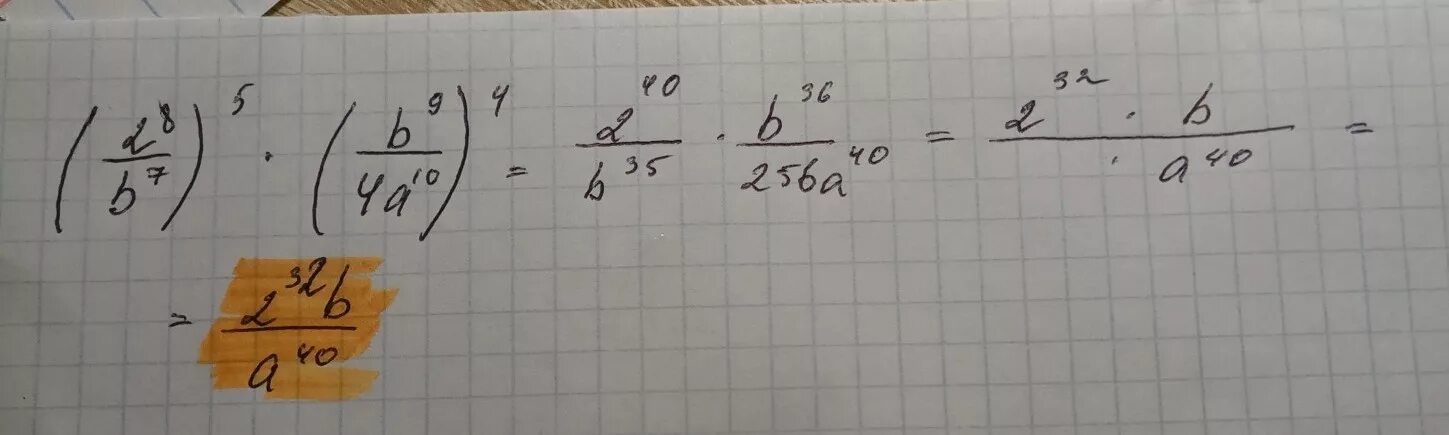 (2⁸/b⁷)⁵ · (b⁹/4a¹⁰)⁴ = 2⁴⁰/b³⁵ · b³⁶/256a⁴⁰ = 2³² · b/· a⁴⁰ =
= 2³²b/a⁴⁰